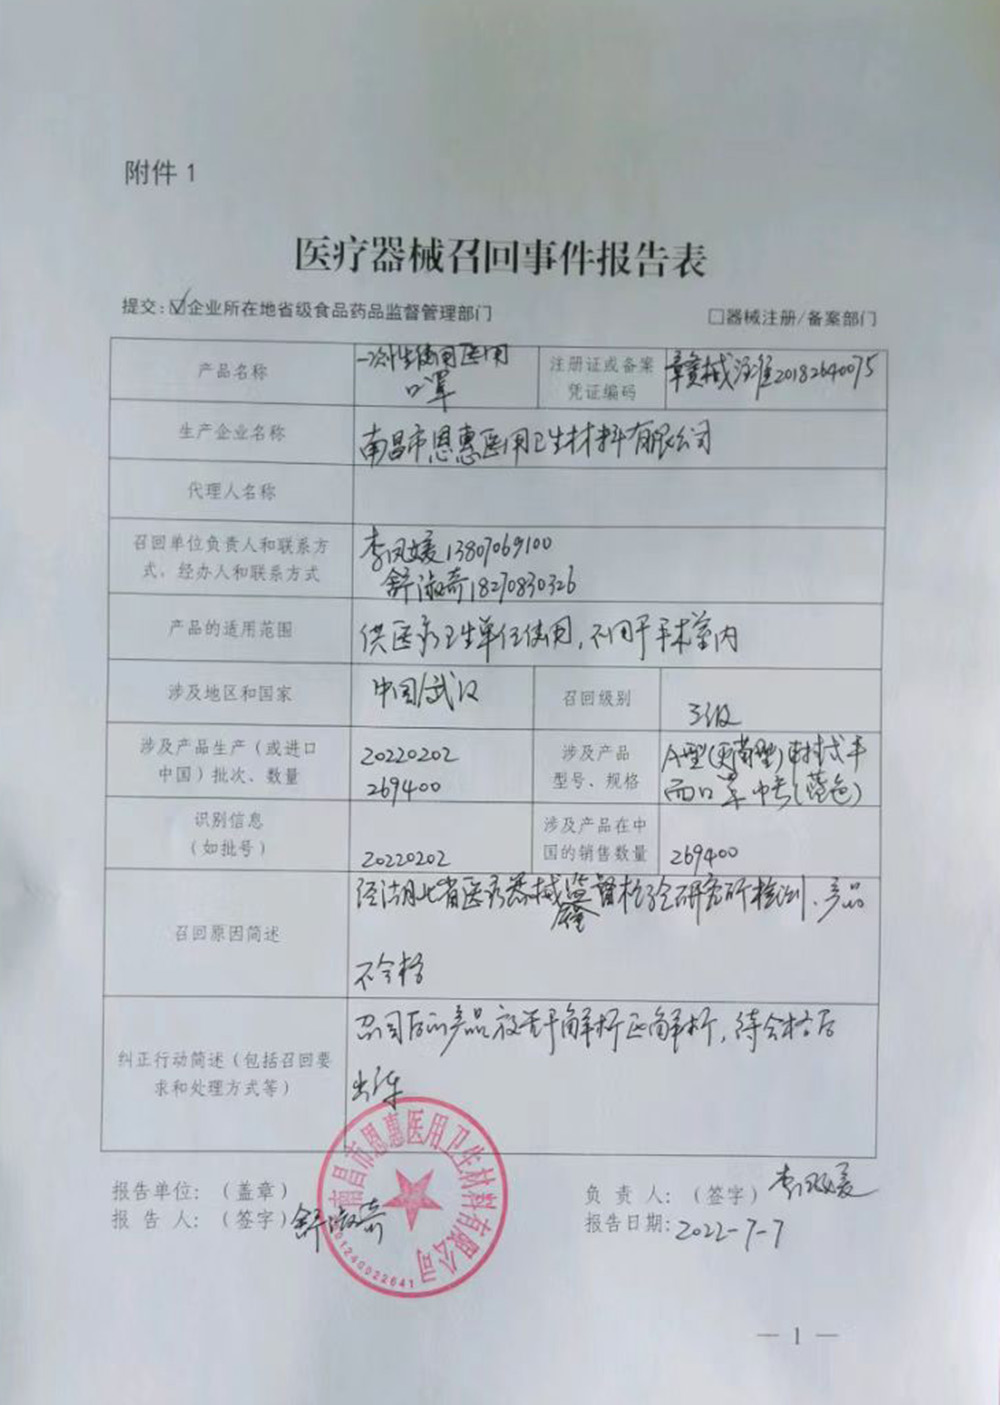 附件 1
医疗器械召回事件报告表
提交：☑企业所在地省级食品药品监督管理部门
□器械注册/备案部门
产品名称
一次性使用医用
口罩
注册证或备案
凭证编码
赣械注准20182640075
生产企业名称
南昌市恩惠医用卫生材料有限公司
代理人名称
召回单位负责人和联系方
式、经办人和联系方式
李凤媛13807069100
舒淑奇18270830326
产品的适用范围
供医疗卫生单位使用，不用于手术室内
涉及地区和国家
中国/武汉
召回级别
三级
涉及产品生产（或进口
中国）批次、数量
20220202
269400
涉及产品
型号、规格
A型(平面型)耳挂式平
面口罩 中号(蓝色)
识别信息
（如批号）
20220202
涉及产品在中
国的销售数量
269400
召回原因简述
经湖北省医疗器械监督检验研究所检测、产品
不合格
纠正行动简述（包括召回要
求和处理方式等）
召回后的产品放置于解析区解析，待合格后
出库
报告单位：（盖章）
报 告 人：（签字）舒淑奇
负 责 人：（签字）李凤媛
报告日期：2022-7-7
南昌市恩惠医用卫生材料有限公司
— 1 —